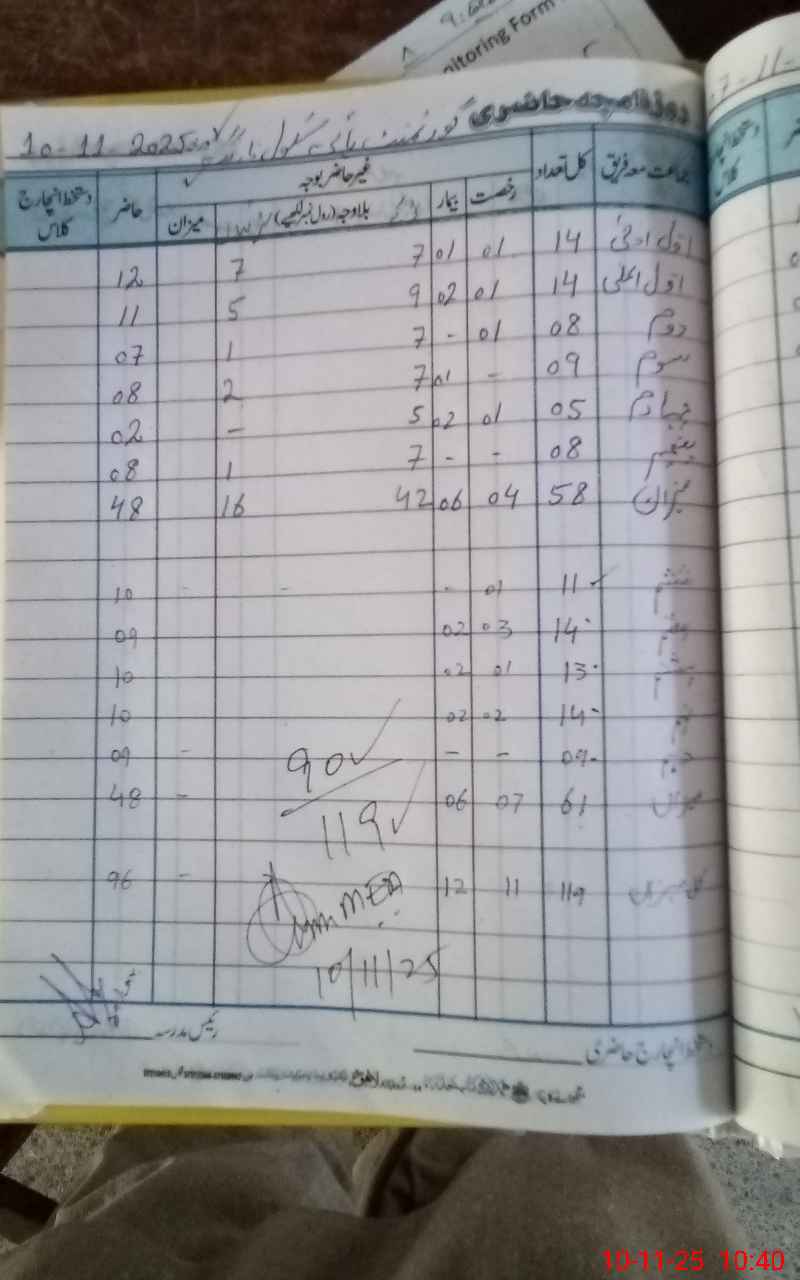 9:
nitoring Form
روزنامچہ حاضری گورنمنٹ ہائی سکول
10-11-2025
7-11-
جماعت معہ فریق کل تعداد غیر حاضر بوجہ حاضر دستخط انچارج کلاس
رخصت بیمار بلاوجہ (رول نمبر لکھیے) میزان
اول ادنیٰ 14 01 01 7 7 12
اول اعلیٰ 14 01 02 9 5 11
دوم 08 01 - 7 1 07
سوم 09 - 01 7 2 08
چہارم 05 01 02 5 - 02
پنجم 08 - - 7 1 08
میزان 58 04 06 42 16 48
ششم 11 01 - - - 10
ہفتم 14 03 02 09
ہشتم 13 01 02 10
نہم 14 02 02 10
دہم 09 - - - 09
میزان 61 07 06 - 48
90
119
کل میزان 119 11 12 - 96
MEA
10/11/25
دستخط انچارج حاضری رئیس مدرسہ
10-11-25 10:40